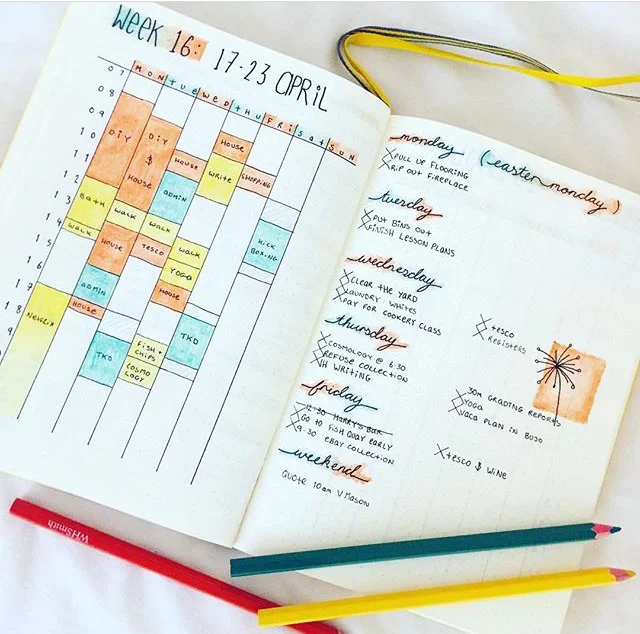 WEEK 16: 17-23 APRIL
07 MON TUE WED THU FRI SAT SUN
08
09
10
11
12
13
14
15
16
17
18
9
DIY
BATH
WALK
NETFLIX
DIY
$
HOUSE
WALK
HOUSE
ADMIN
HOUSE
TKD
HOUSE
ADMIN
WALK
TESCO
FISH +
CHIPS
COSMO
LOGY
HOUSE
WRITE
WALK
YOGA
HOUSE
TKD
SHOPPING
KICK
BOXING
monday (easter monday)
PULL UP FLOORING
RIP OUT FIREPLACE
tuesday
PUT BINS OUT
FINISH LESSON PLANS
wednesday
CLEAR THE YARD
LAUNDRY WHITES
PAY FOR COOKERY CLASS
TESCO
REGISTERS
thursday
COSMOLOGY @ 6:30
REFUSE COLLECTION
VH WRITING
30M GRADING REPORTS
YOGA
VACA PLAN IN BUJO
friday
12:30 HARRY'S BAR
GO TO FISH QUAY EARLY
9:30 EBAY COLLECTION
TESCO $ WINE
weekend
QUOTE 10am V MASON
WHSmith